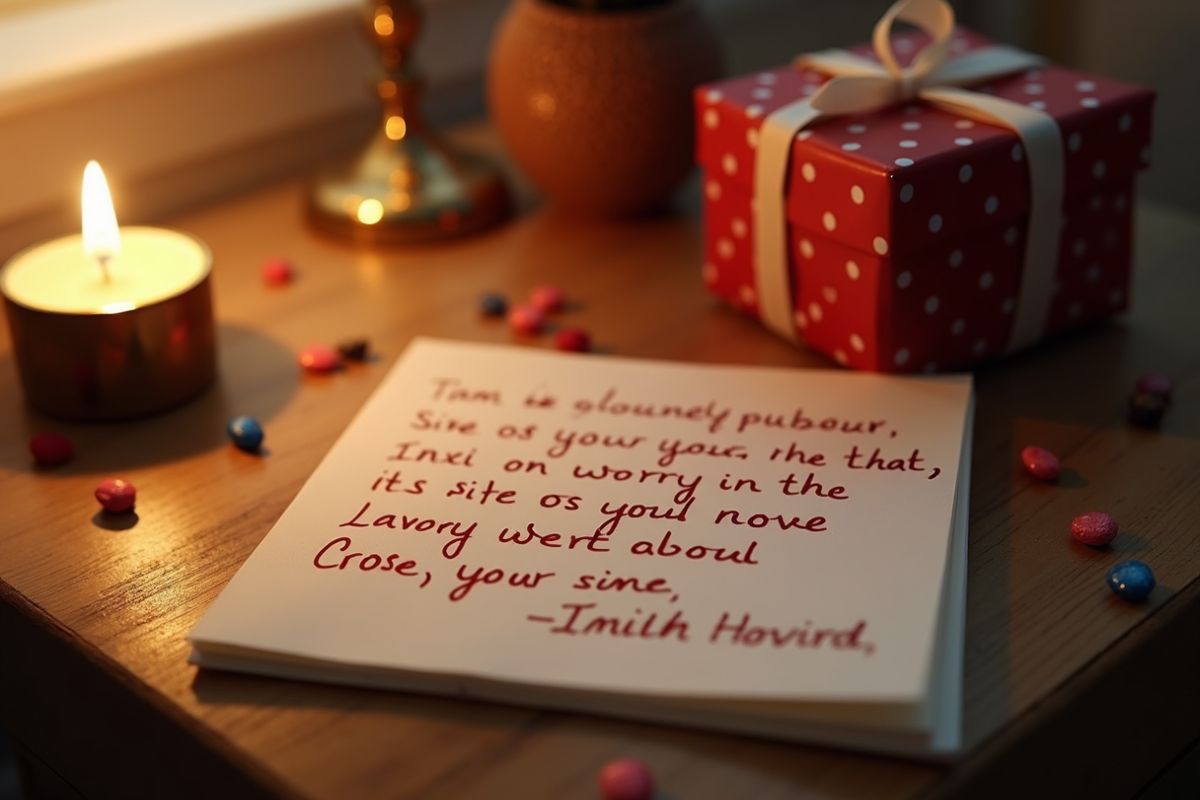 Tam is glounely pubour,
Sire os your your the that,
Inxi on worry in the
its site os youl nove
Lavory wert aboul
Crose, your sine,
-Imilh Hovird,